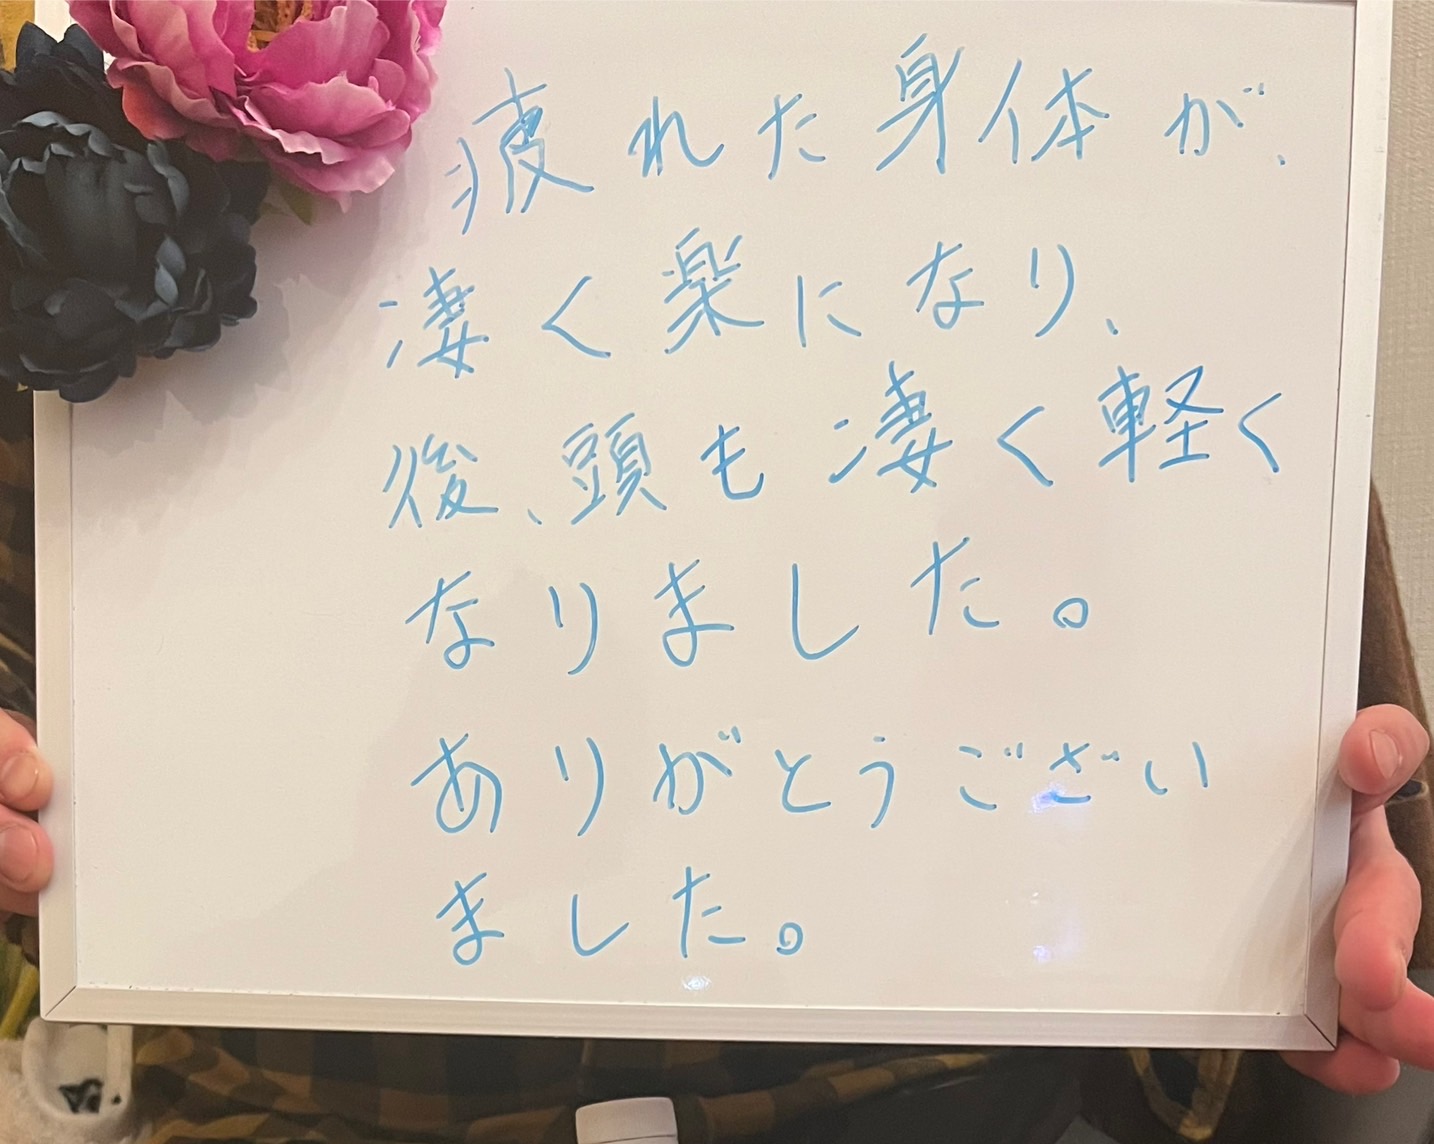 疲れた身体が、
凄く楽になり、
後、頭も凄く軽く
なりました。
ありがとうござい
ました。